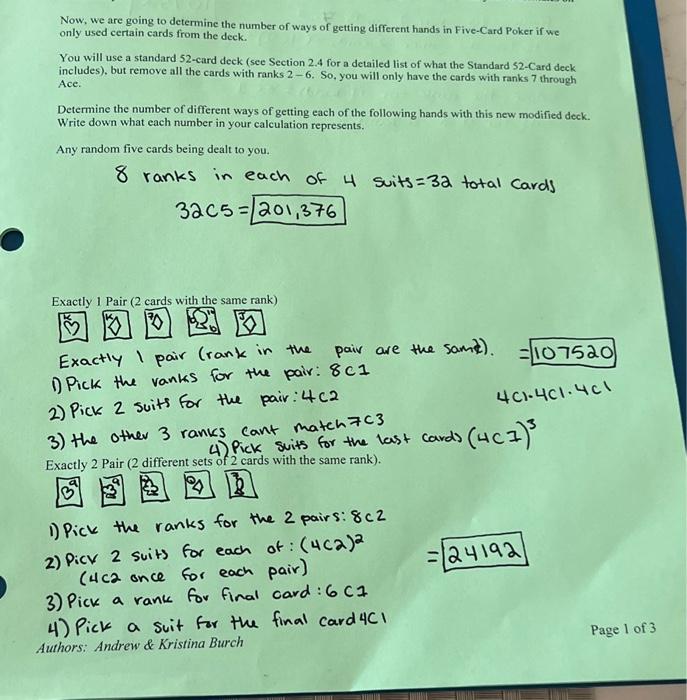 Now, we are going to determine the number of ways of getting different hands in Five-Card Poker if we
only used certain cards from the deck.
You will use a standard 52-card deck (see Section 2.4 for a detailed list of what the Standard 52-Card deck
includes), but remove all the cards with ranks 2 – 6. So, you will only have the cards with ranks 7 through
Ace.
Determine the number of different ways of getting each of the following hands with this new modified deck.
Write down what each number in your calculation represents.
Any random five cards being dealt to you.
8 ranks in each of 4 suits = 32 total cards
32C5 = 201,376
Exactly 1 Pair (2 cards with the same rank)
Exactly 1 pair (rank in the pair are the same). = 107520
1) Pick the ranks for the pair: 8C1
2) Pick 2 suits for the pair: 4C2
4C1·4C1·4C1
3) the other 3 ranks cant match 7C3
4) Pick suits for the last cards (4C1)³
Exactly 2 Pair (2 different sets of 2 cards with the same rank).
1) Pick the ranks for the 2 pairs: 8C2
2) Pick 2 suits for each of: (4C2)²
(4C2 once for each pair)
= 24192
3) Pick a rank for final card: 6C1
4) Pick a suit for the final card 4C1
Authors: Andrew & Kristina Burch
Page 1 of 3